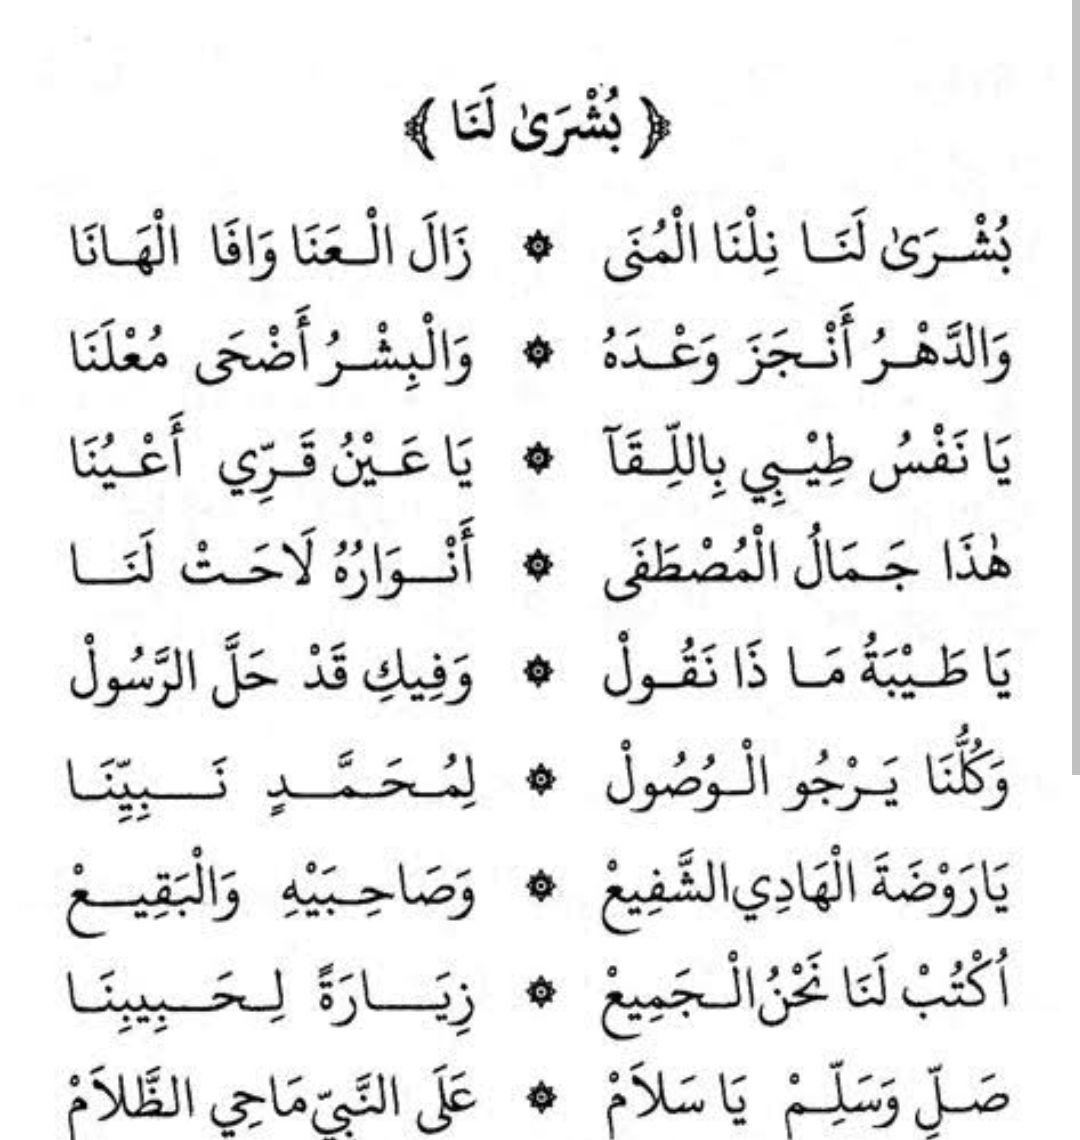 ﴿ بُشْرَىٰ لَنَا ﴾
بُشْرَىٰ لَنَا نِلْنَا الْمُنَى ۞ زَالَ الْعَنَا وَافَا الْهَانَا
وَالدَّهْرُ أَنْجَزَ وَعْدَهُ ۞ وَالْبِشْرُ أَضْحَى مُعْلَنَا
يَا نَفْسُ طِيْبِي بِاللِّقَآ ۞ يَا عَيْنُ قَرِّي أَعْيُنَا
هٰذَا جَمَالُ الْمُصْطَفَى ۞ أَنْوَارُهُ لَاحَتْ لَنَا
يَا طَيْبَةُ مَا ذَا نَقُولْ ۞ وَفِيكِ قَدْ حَلَّ الرَّسُولْ
وَكُلُّنَا يَرْجُو الْوُصُولْ ۞ لِمُحَمَّدٍ نَبِيِّنَا
يَارَوْضَةَ الْهَادِي الشَّفِيعْ ۞ وَصَاحِبَيْهِ وَالْبَقِيعْ
اُكْتُبْ لَنَا نَحْنُ الْجَمِيعْ ۞ زِيَارَةً لِحَبِيبِنَا
صَلِّ وَسَلِّمْ يَا سَلاَمْ ۞ عَلَى النَّبِيّ مَاحِي الظَّلاَمْ